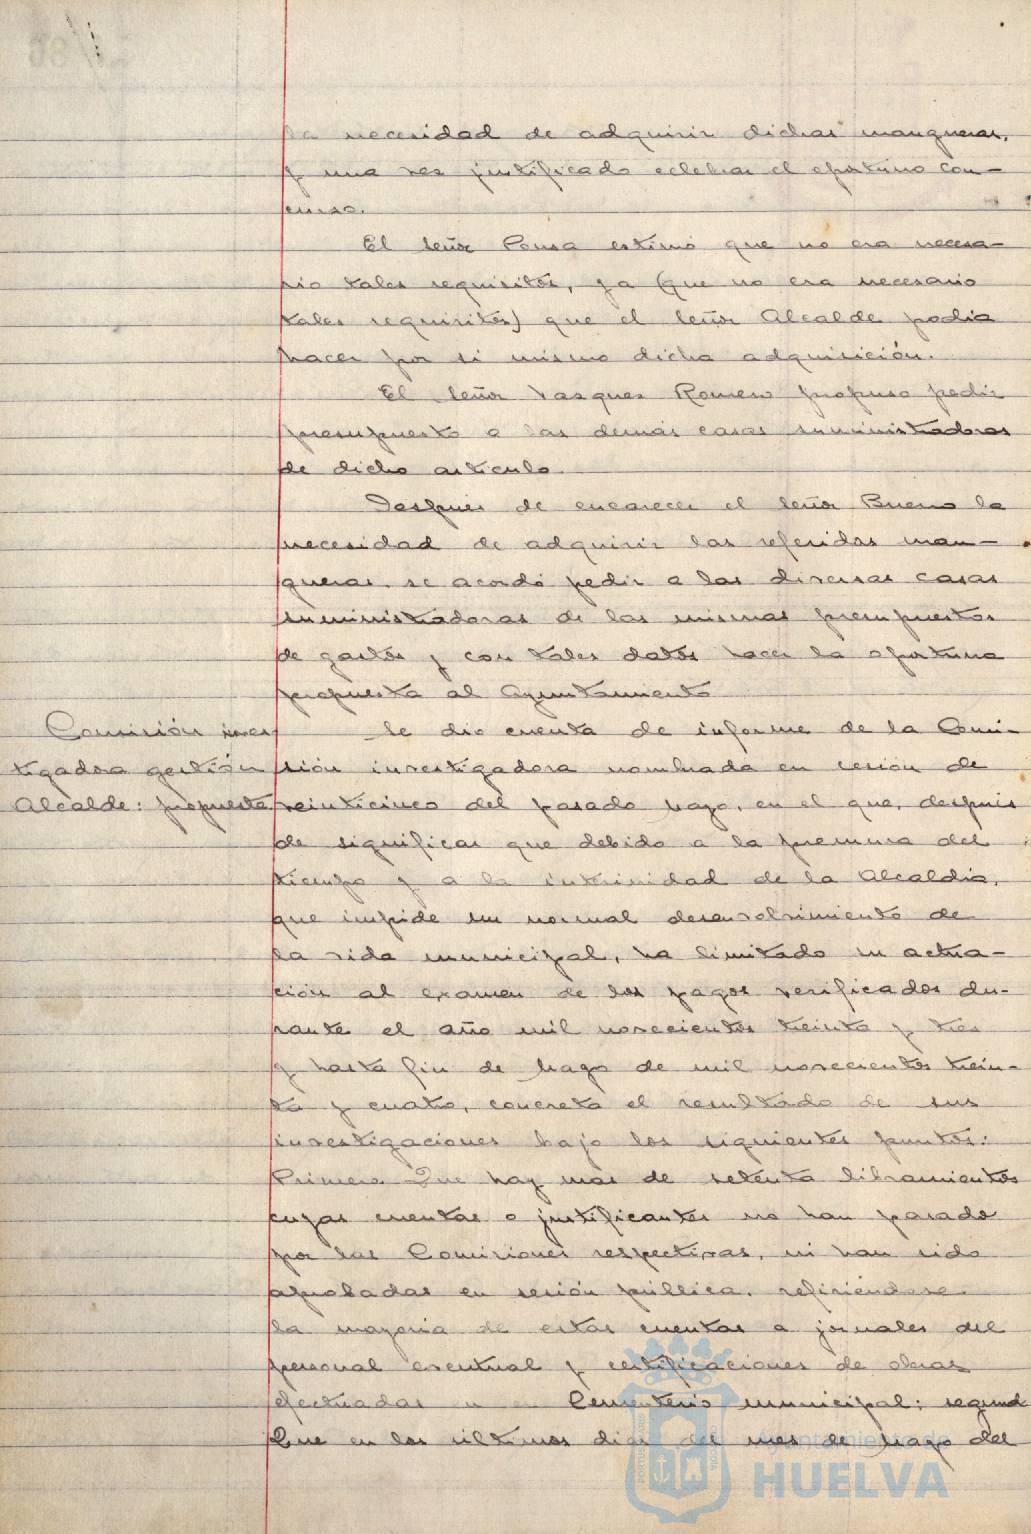 la necesidad de adquirir dichas mangueras,
y una vez justificado celebrar el oportuno con-
curso.
El señor Ponsa estimó que no era necesa-
rio tales requisitos, ya (que no era necesario
tales requisitos) que el señor Alcalde podia
hacer por si mismo dicha adquisición.
El señor Vazques Romero propuso pedir
presupuesto a las demás casas suministradoras
de dicho articulo.
Despues de encarecer el señor Bueno la
necesidad de adquirir las referidas man-
gueras, se acordó pedir a las diversas casas
suministradoras de las mismas presupuestos
de gastos y con tales datos hacer la oportuna
propuesta al Ayuntamiento
Comisión inves
tigadora gestión
Alcalde: propuesta
Se dio cuenta de informe de la Comi-
sión investigadora nombrada en sesión de
veinticinco del pasado Mayo, en el que, después
de significar que debido a la premura del
tiempo y a la interinidad de la Alcaldia,
que impide un normal desenvolvimiento de
la vida municipal, ha limitado su actua-
ción al examen de los pagos verificados du-
rante el año mil novecientos treinta y tres
y hasta fin de Mayo de mil novecientos trein-
ta y cuatro, concreta el resultado de sus
investigaciones bajo los siguientes puntos:
Primero Que hay mas de setenta libramientos
cuyas cuentas o justificantes no han pasado
por las Comisiones respectivas, ni han sido
aprobadas en sesión pública, refiriendose
la mayoria de estas cuentas a jornales del
personal eventual y certificaciones de obras
efectuadas en el Cementerio municipal; segundo
Que en los últimos dias del mes de Mayo del
Ayuntamiento de
HUELVA